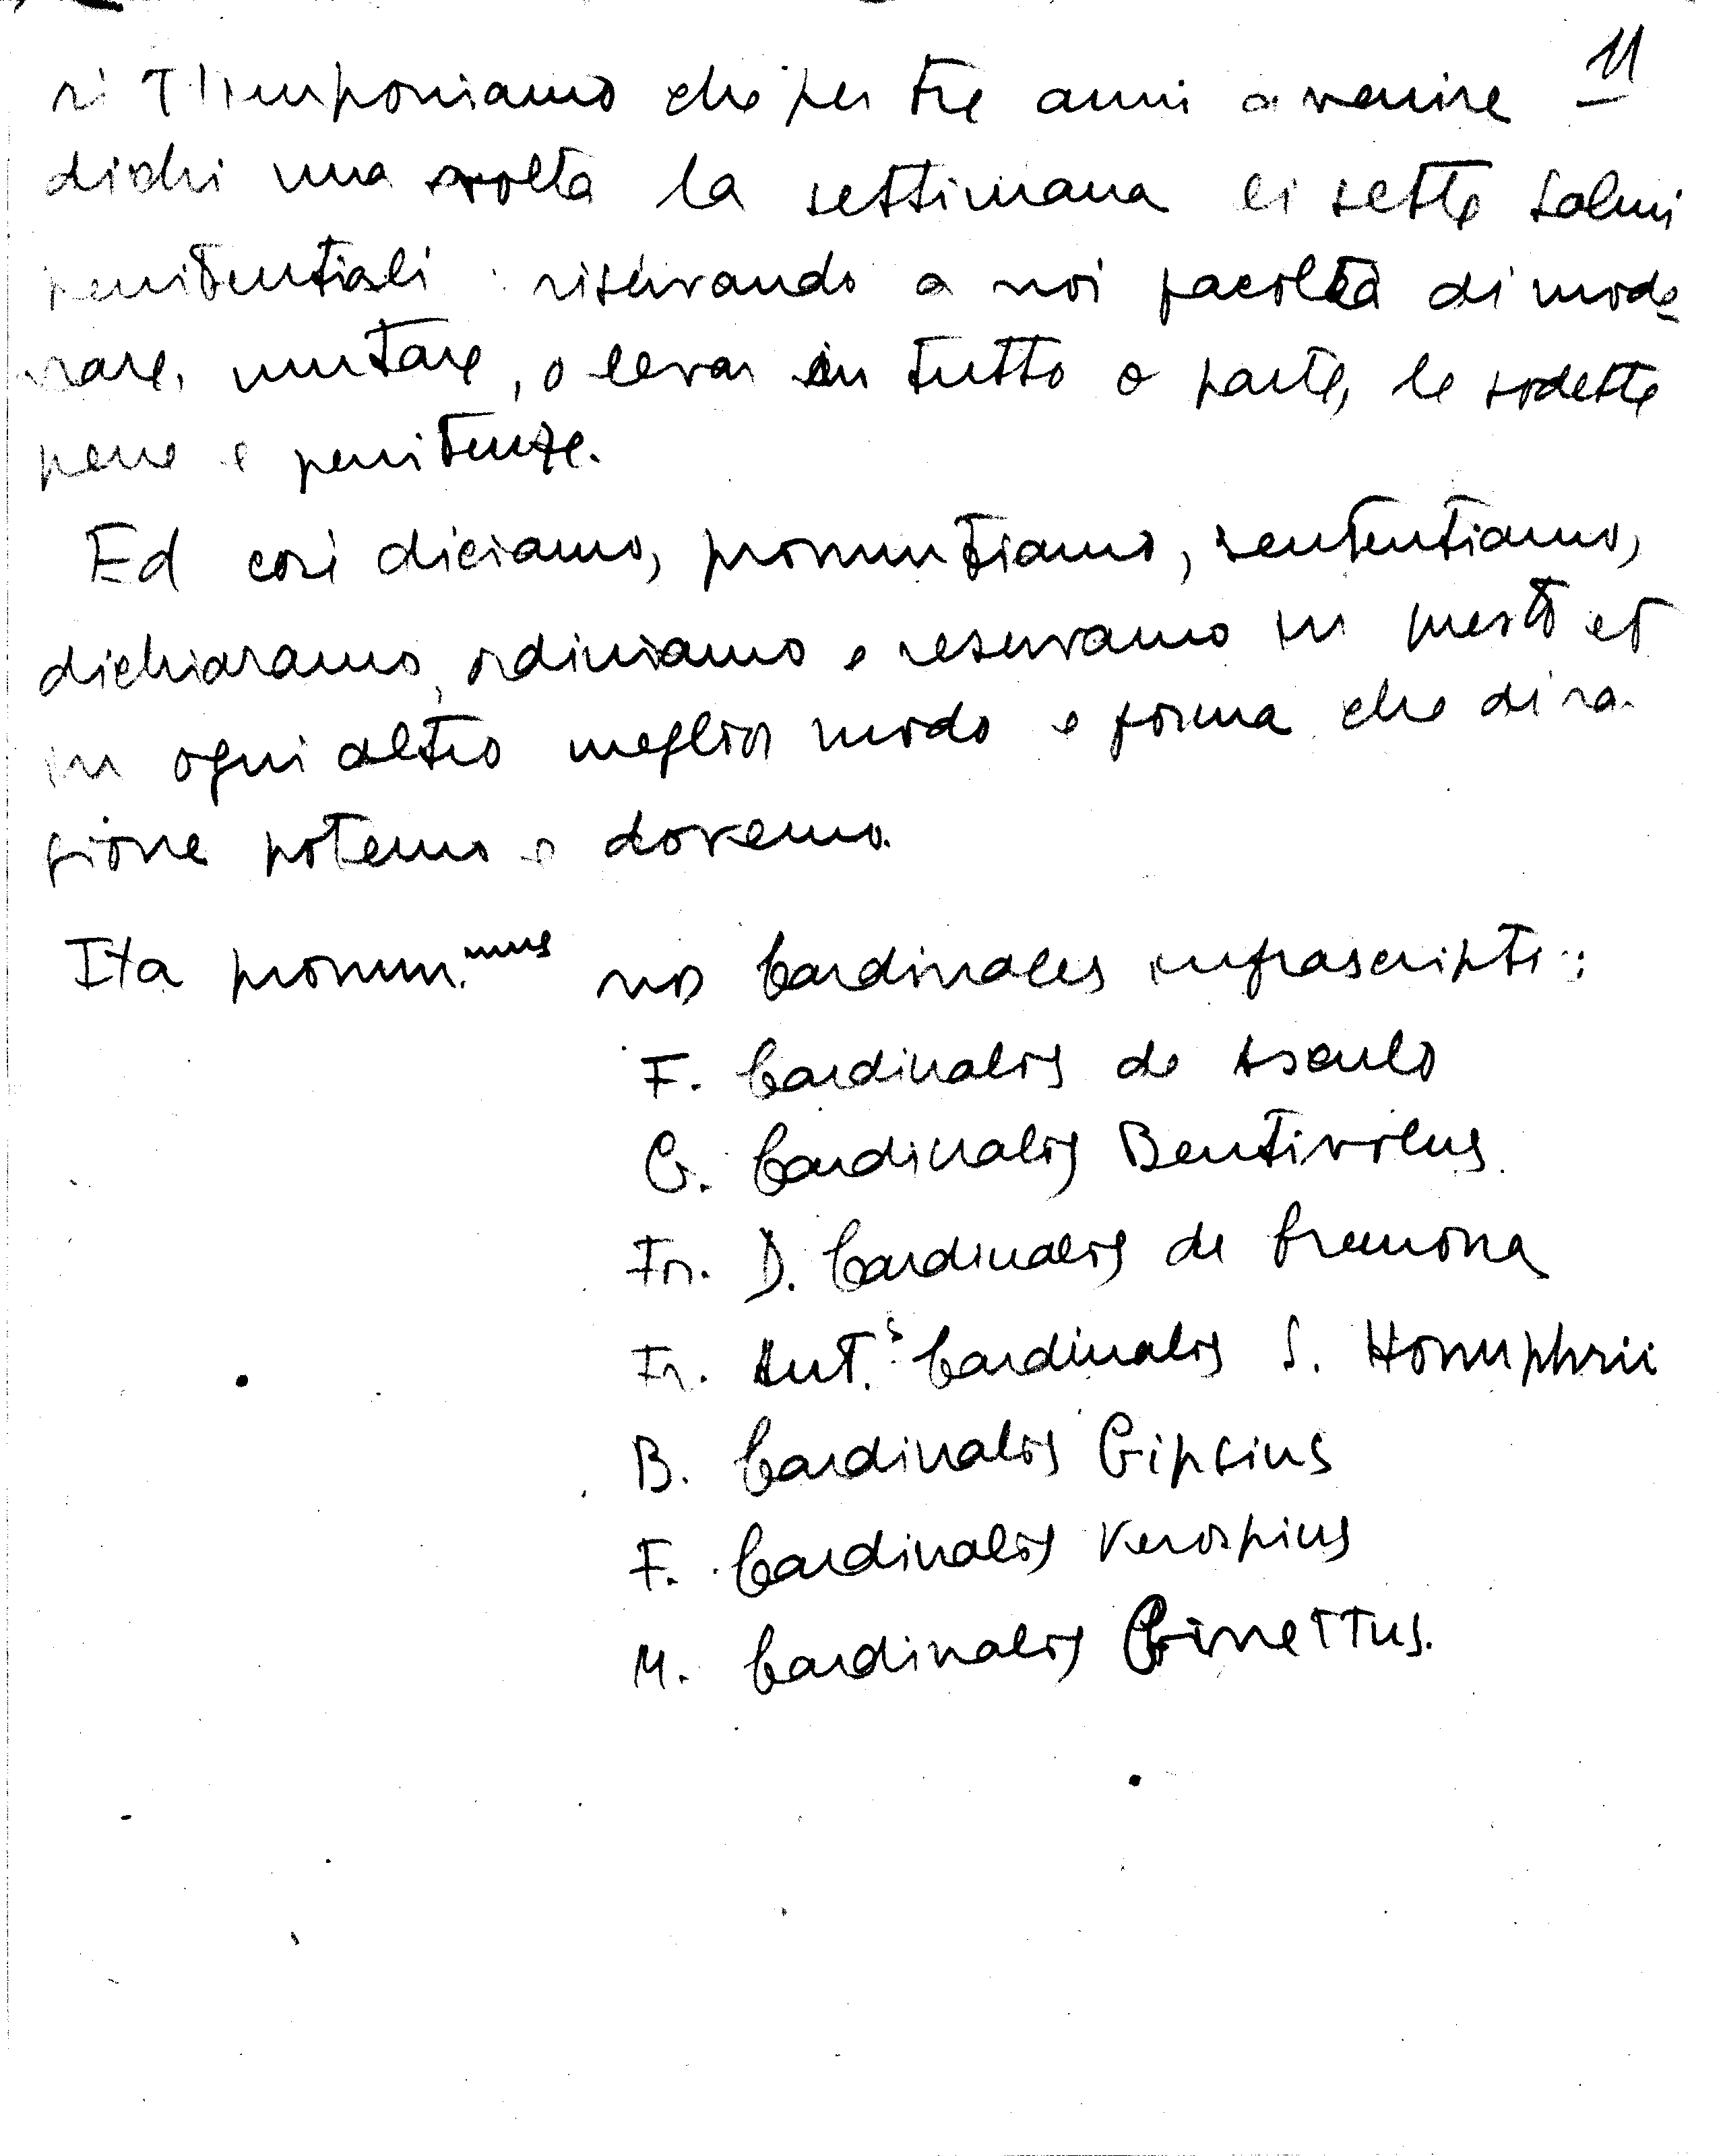 11
ri t'imponiamo che per tre anni a venire
dichi una volta la settimana li sette Salmi
penitentiali: riservando a noi facoltà di mode
rare, mutare, o levar in tutto o parte, le sodette
pene e penitenze.
Ed così diciamo, pronuntiamo, sententiamo,
dichiaramo, ordiniamo e reservamo in questo et
in ogni altro meglior modo e forma che di ra-
gione potemo e dovemo.
Ita pronun.mus nos Cardinales infrascripti:
F. Cardinalis de Asculo
G. Cardinalis Bentivolus
Fr. D. Cardinalis de Cremona
Fr. Ant.s Cardinalis S. Honuphrii
B. Cardinalis Gipsius
F. Cardinalis Verospius
M. Cardinalis Ginettus.